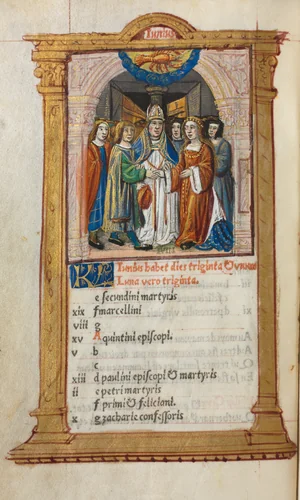 Iunius
KL Iunius habet dies triginta
Luna vero triginta.
e secundini martyris
xix f marcellini
viii g
xv A quintini episcopi.
v b
c
xiii d paulini episcopi & martyris
ii e petri martyris
f primi & feliciani.
x g zacharie confessoris